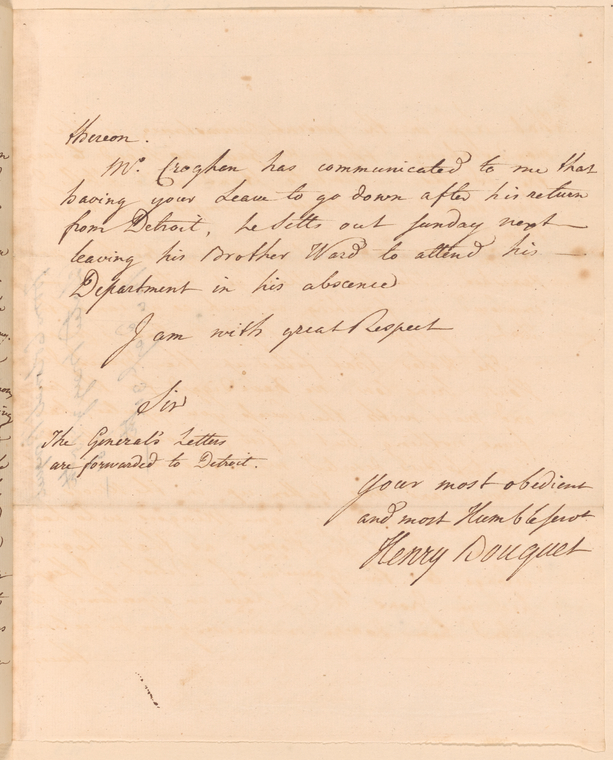 thereon.
Mr. Croghan has communicated to me that
having your Leave to go down after his return
from Detroit, he Setts out Sunday next —
leaving his Brother Ward to attend his —
Department in his abscence
I am with great Respect
Sir
The General's Letters
are forwarded to Detroit.
Your most obedient
and most Humble servt
Henry Bouquet